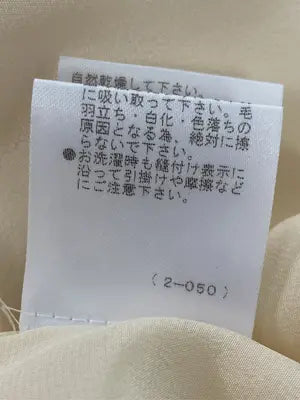 自然乾燥して下さい。
に吸い取って下さい。毛
羽立ち・白化・色落ちの
原因となる為、絶対に擦
らないで下さい。
●お洗濯時も縫付け表示に
沿って引掛けや摩擦など
にご注意下さい。
(2-050)